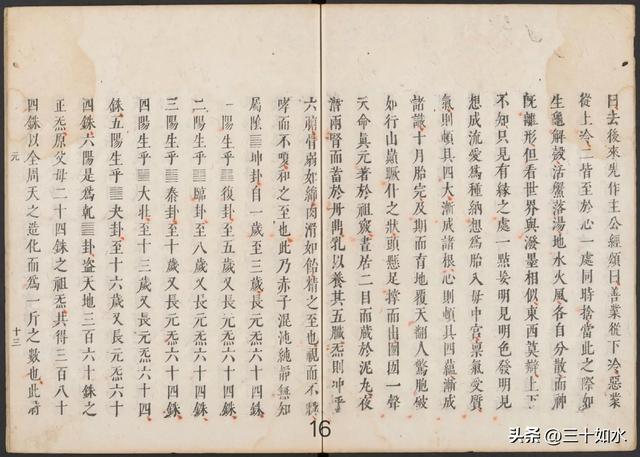 曰去後來先作主公經頌曰善業從下冷惡業
從上冷二皆至於心一處同時捨當此之際如
生龜解殼活蟹落湯地水火風各自分散而神
既離形但看世界與潑墨相似東西莫辯上下
不知只見有緣之處一點妄明見明色發明見
想成流愛爲種納想爲胎入母中宮稟氣受質
氣則頓具四大漸成諸根心則頓具四蘊漸成
諸識十月胎完及期而育地覆天翻人驚胞破
如行山巔蹶仆之狀頭懸足撐而出㘞囮一聲
天命眞元著於祖竅晝居二目而藏於泥丸夜
潛兩腎而蓄於丹鼎乳以養其五臟炁則冲乎
六腑骨弱如綿肉滑如飴精之至也視而不瞬
啼而不嗄和之至也此乃赤子混沌純靜無知
屬陰䷁坤卦自一歲至三歲長元炁六十四銖
一陽生乎䷗復卦至五歲又長元炁六十四銖
二陽生乎䷒臨卦至八歲又長元炁六十四銖
三陽生乎䷊泰卦至十歲又長元炁六十四銖
四陽生乎䷡大壯至十三歲又長元炁六十四
銖五陽生乎䷪夬卦至十六歲又長元炁六十
四銖六陽是爲乾䷀卦盗天地三百六十銖之
正炁原父母二十四銖之祖炁共得三百八十
四銖以全周天之造化而爲一斤之數也此時
元
十三
16
头条@三十如水